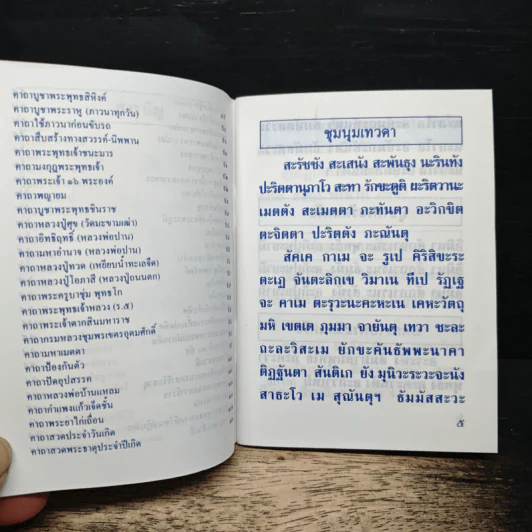 คาถาบูชาพระพุทธสิหิงค์
คาถาบูชาพระราหู (ภาวนาทุกวัน)
คาถาใช้ภาวนาก่อนขับรถ
คาถาสืบสร้างทางสวรรค์-นิพพาน
คาถาพระพุทธเจ้าชนะมาร
คาถามงกุฎพระพุทธเจ้า
คาถาพระเจ้า ๑๖ พระองค์
คาถาพญายม
คาถาบูชาพระพุทธชินราช
คาถาหลวงปู่ศุข (วัดมะขามเฒ่า)
คาถาอิทธิฤทธิ์ (หลวงพ่อปาน)
คาถามหาอำนาจ (หลวงพ่อปาน)
คาถาหลวงปู่ทวด (เหยียบน้ำทะเลจืด)
คาถาหลวงปู่โอภาสี (หลวงปู่ถนนตก)
คาถาพระครูบาชุ่ม พุทธโก
คาถาพระพุทธเจ้าหลวง (ร.๕)
คาถาพระเจ้าตากสินมหาราช
คาถากรมหลวงชุมพรเขตรอุดมศักดิ์
คาถามหาเมตตา
คาถาป้องกันตัว
คาถาปัดอุปสรรค
คาถาหลวงพ่อบ้านแหลม
คาถากำแพงแก้วเจ็ดชั้น
คาถาพระยาไก่เถื่อน
คาถาสวดประจำวันเกิด
คาถาสวดพระธาตุประจำปีเกิด
ชุมนุมเทวดา
สะรัชชัง สะเสนัง สะพันธุง นะรินทัง
ปะริตตานุภาโว สะทา รักขะตูติ ผะริตวานะ
เมตตัง สะเมตตา ภะทันตา อะวิกขิต
ตะจิตตา ปะริตตัง ภะณันตุ
สัคเค กาเม จะ รูเป คิริสิขะระ
ตะเฏ จันตะลิกเข วิมาเน ทีเป รัฏเฐ
จะ คาเม ตะรุวะนะคะหะเน เคหะวัตถุ
มหิ เขตเต ภุมมา จายันตุ เทวา ชะละ
ถะละวิสะเม ยักขะคันธัพพะนาคา
ติฏฐันตา สันติเก ยัง มุนิวะระวะจะนัง
สาธะโว เม สุณันตุฯ ธัมมัสสะวะ
๕